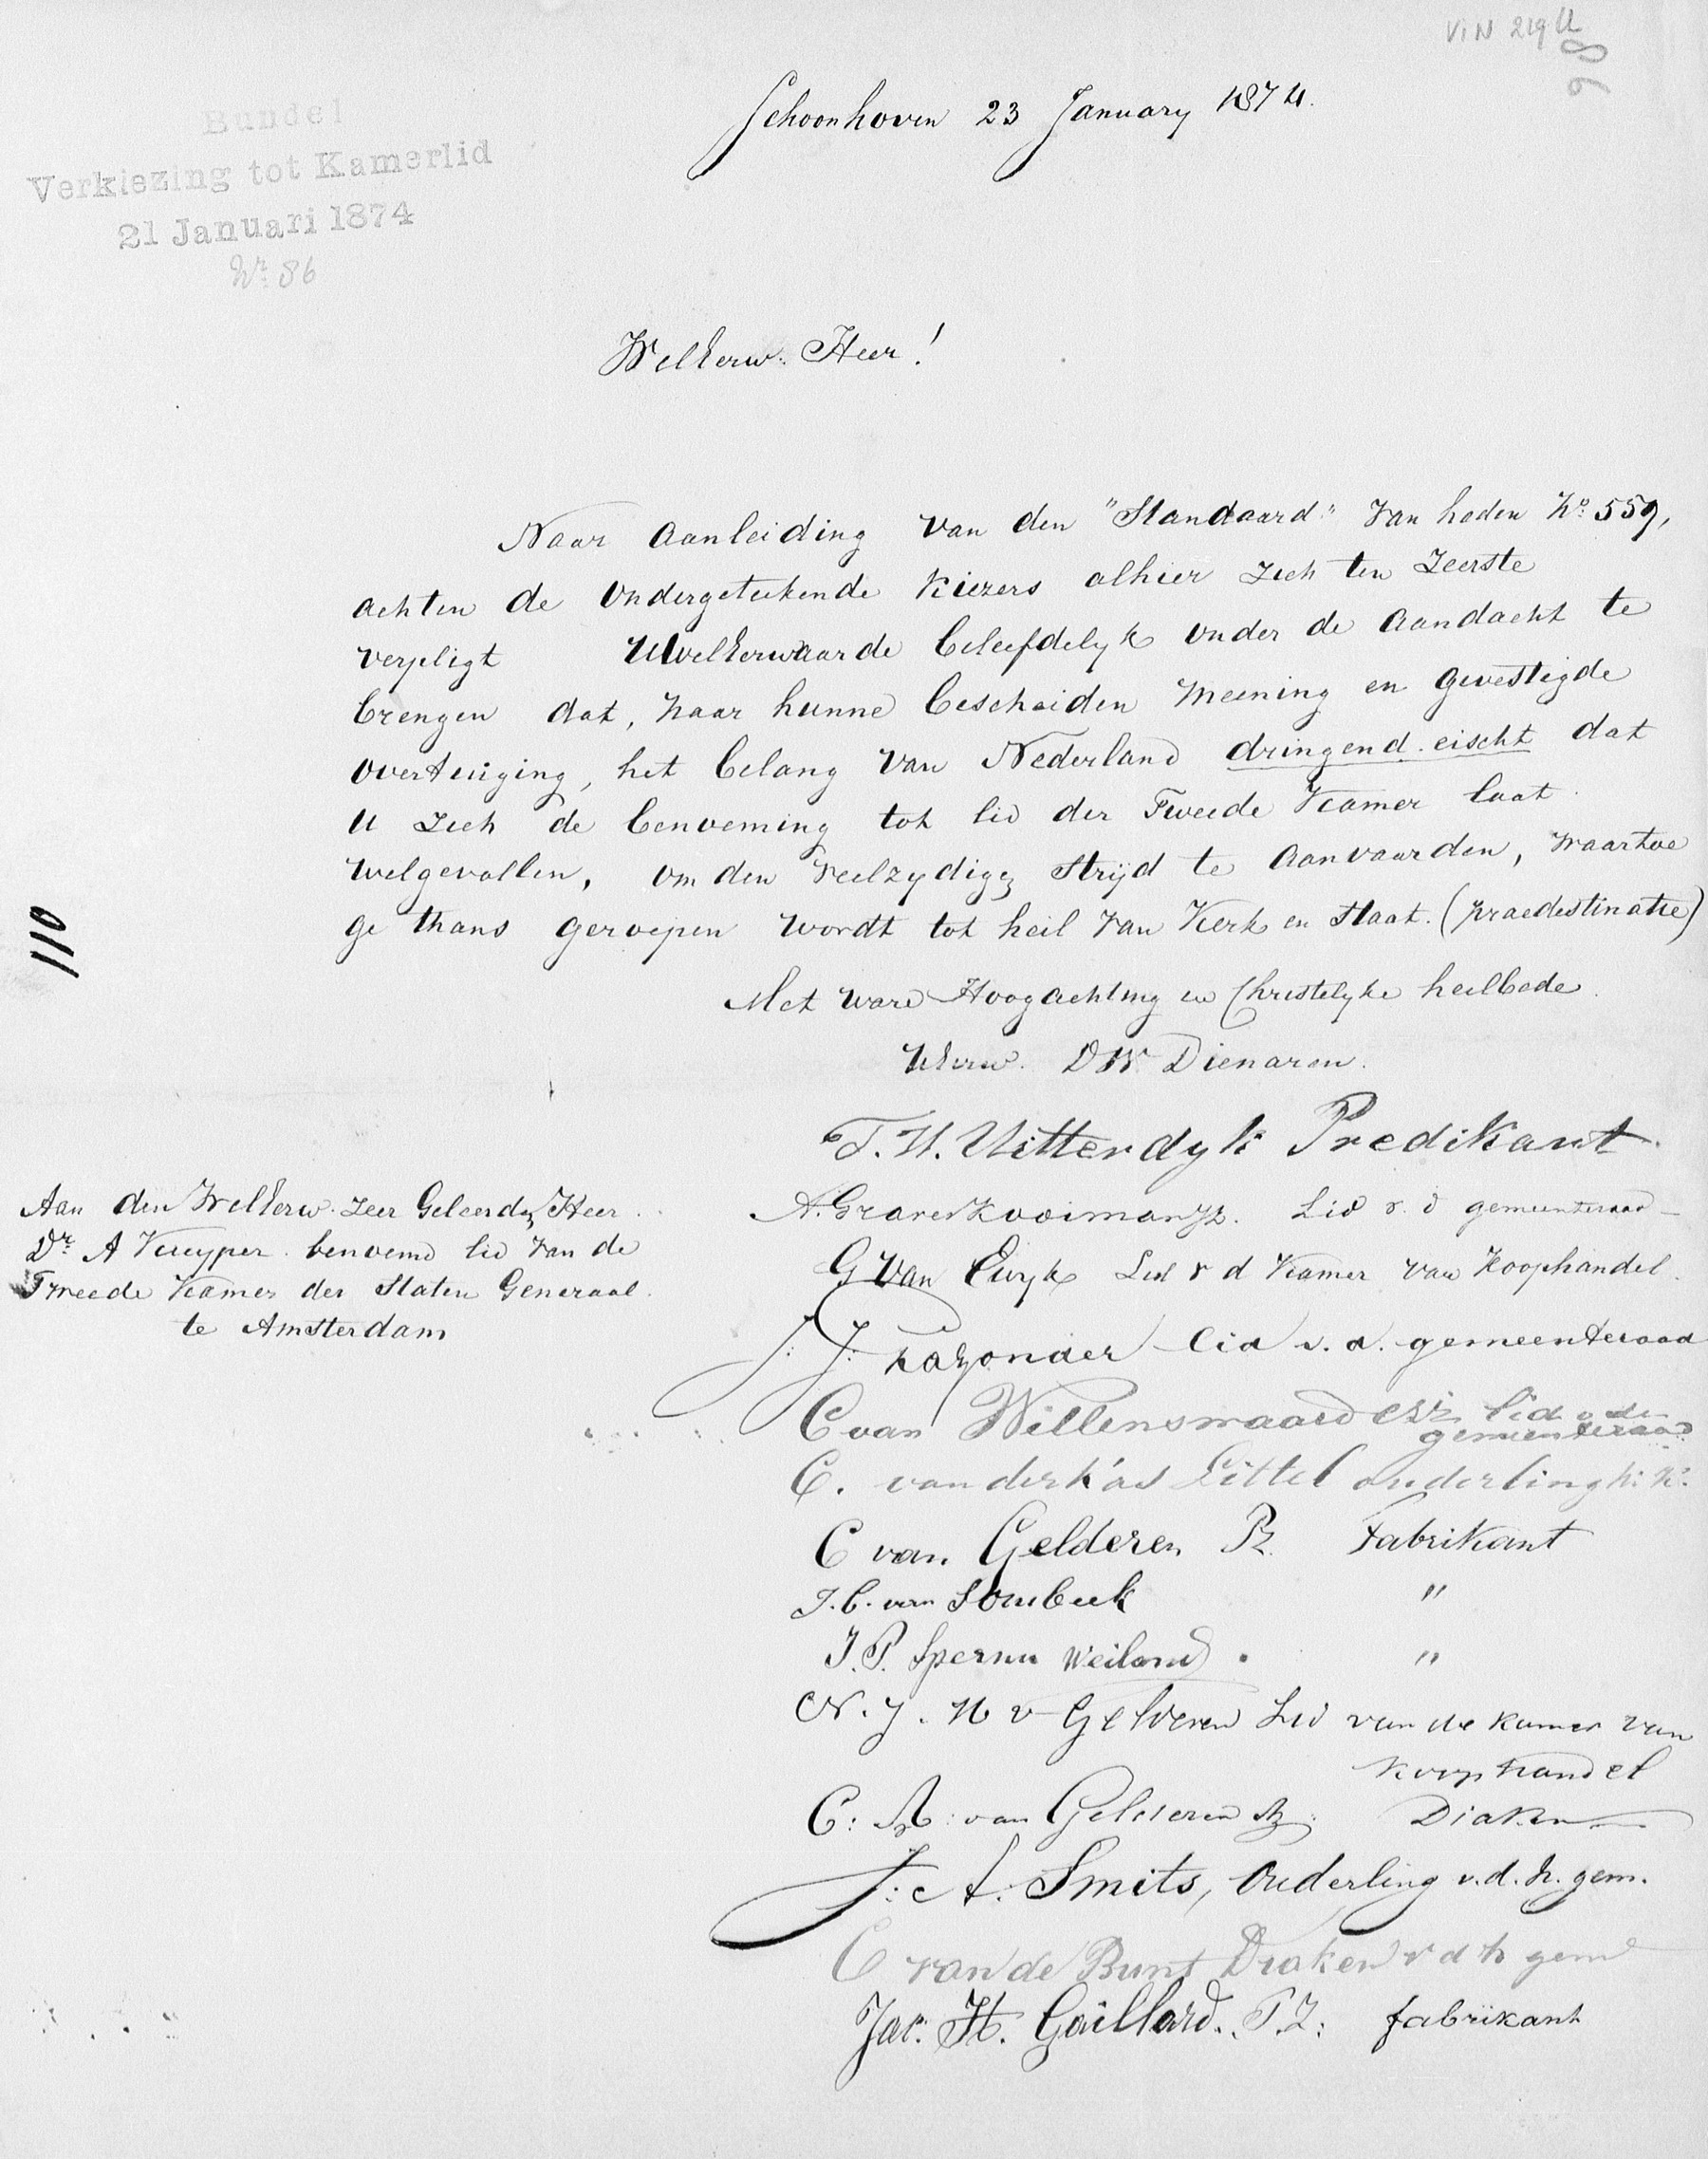 ViN 219 U
86
Bundel
Verkiezing tot Kamerlid
21 Januari 1874
Nr. 86
Schoonhoven 23 January 1874.
WelEerw. Heer!
Naar aanleiding van den "Standaard" van heden No. 559,
achten de ondergeteekende Kiezers alhier zich ten zeerste
verpligt UwelEerwaarde beleefdelyk onder de aandacht te
brengen dat, naar hunne bescheiden meening en gevestigde
overtuiging, het belang van Nederland dringend eischt dat
U zich de benoeming tot lid der Tweede Kamer laat
welgevallen, om den veelzydigen strijd te aanvaarden, waartoe
ge thans geroepen wordt tot heil van Kerk en Staat. (praedestinatie)
Met ware Hoogachting en Christelyke heilbede
UEerw. DW Dienaren.
T. H. Uitterdyk Predikant.
A. Graves Kooiman Jz. Lid v. d gemeenteraad
G van Ewyk Lid v d Kamer van Koophandel.
J: J: Kazonder lid v. d. gemeenteraad
C van Willenswaard lid v de
gemeenteraad
C. van der Kas Littel ouderling
C van Gelderen Pz. Fabrikant
J. C. van Sombeek "
J. P. Sperna Weiland "
N. J. H v Gelderen Lid van de kamer van
koophandel
C: A: van Gelderen Diaken
J: A. Smits, Ouderling v. d. h. gem.
C van de Bunt Diaken v d h gem
Jac. H. Gaillard. P.Z: fabrikant
Aan den WelEerw. zeer Geleerden Heer
Dr. A Kuyper benoemd lid van de
Tweede Kamer der Staten Generaal
te Amsterdam
110